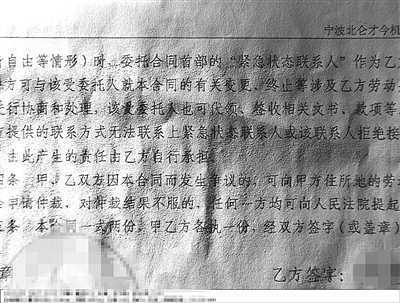 宁波北仑才今机
自由等情形)时，委托合同首部的“紧急状态联系人”作为乙方
方可与该受委托人就本合同的有关变更、终止等涉及乙方劳动
行协商和处理，该受委托人也可代领、签收相关文书、款项等
方提供的联系方式无法联系上紧急状态联系人或该联系人拒绝接
由此产生的责任由乙方自行承担。
条 甲、乙双方因本合同而发生争议的，可向甲方住所地的劳动
申请仲裁，对仲裁结果不服的，任何一方均可向人民法院提起
条 本合同一式两份，甲乙方各执一份，经双方签字(或盖章)
章
乙方签字：